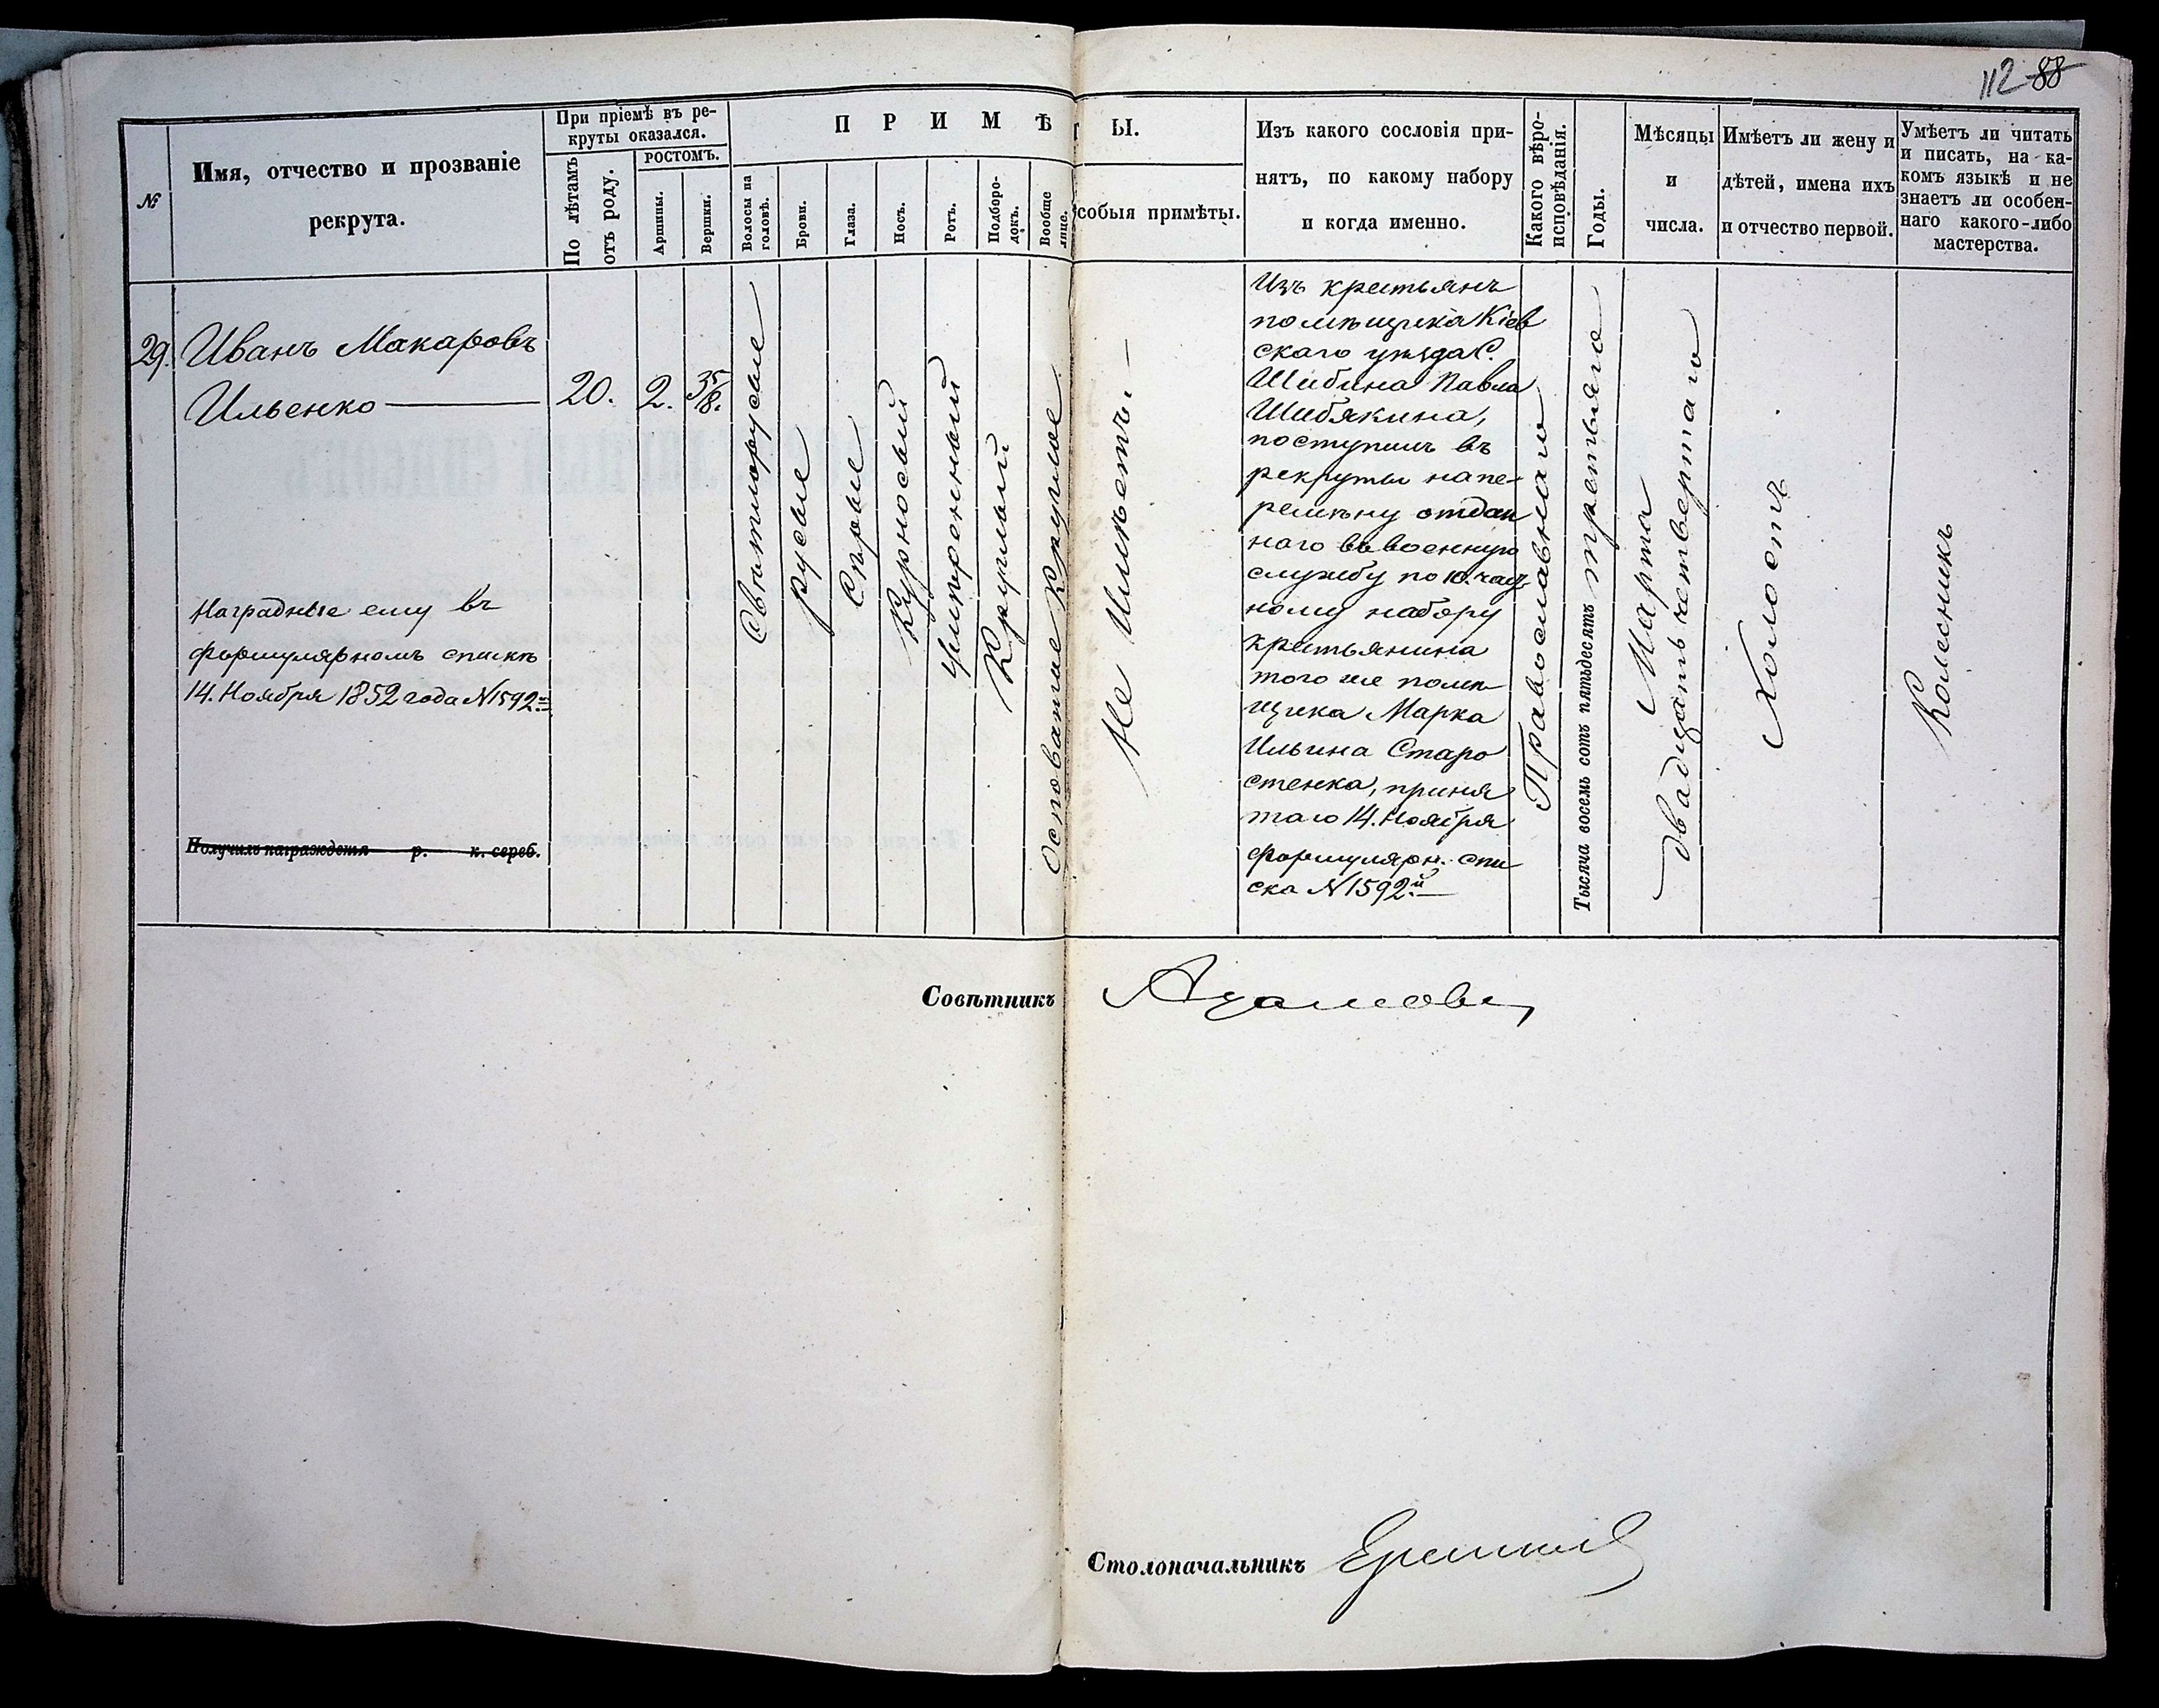 112 88
№
Имя, отчество и прозваніе
рекрута.
При пріемѣ въ ре-
круты оказался.
По лѣтамъ
отъ роду.
РОСТОМЪ.
Аршины.
Вершки.
П Р И М Ѣ Т Ы.
Волосы на
головѣ.
Брови.
Глаза.
Носъ.
Ротъ.
Подборо-
докъ.
Вообще
лице.
собыя примѣты.
Изъ какого сословія при-
нятъ, по какому набору
и когда именно.
Какого вѣро-
исповѣданія.
Годы.
Мѣсяцы
и
числа.
Имѣетъ ли жену и
дѣтей, имена ихъ
и отчество первой.
Умѣетъ ли читать
и писать, на ка-
комъ языкѣ и не
знаетъ ли особен-
наго какого-либо
мастерства.
29.
Иванъ Макаровъ
Ильенко
Наградные ему въ
формулярномъ спискѣ
14. Ноября 1852 года N 1592
Получилъ награжденія р. к. сереб.
20.
2.
3 5/8.
Свѣтлорусые
Русые
Сѣрые
Курносый
Умѣренный
Круглый
Основатие Круглое
Не Имѣетъ.
Изъ крестьянъ
помѣщика Кіев
скаго уѣзда С.
Шибина Павла
Шибякина,
поступилъ въ
рекруты на пе-
ремѣну отдан
наго въ военную
службу по 10. част
ному набору
крестьянина
того же помѣ-
щика Марка
Ильина Старо
стенка, приня
таго 14. Ноября
формулярн. спи
ска N 1592й
Православнаго
Тысяча восемь сотъ пятьдесятъ третьяго
Марта
двадцать четвертаго
Холостъ
Колесникъ
Совѣтникъ
Столоначальникъ